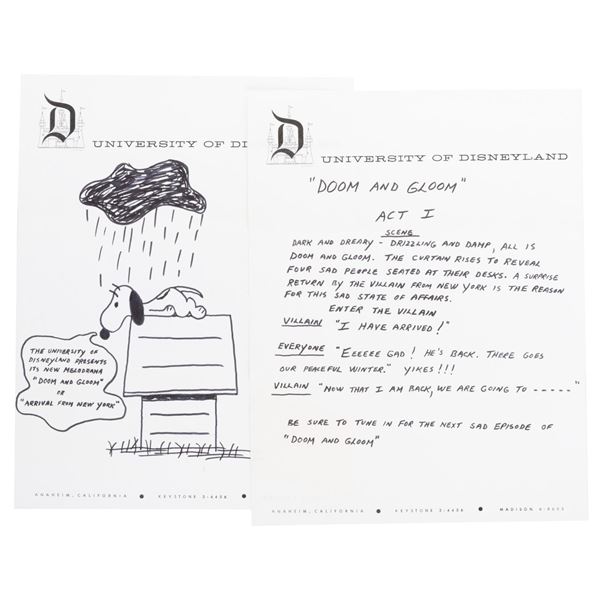 D
UNIVERSITY OF DI
THE UNIVERSITY OF
DISNEYLAND PRESENTS
ITS NEW MELODRAMA
"DOOM AND GLOOM"
OR
"ARRIVAL FROM NEW YORK"
ANAHEIM, CALIFORNIA • KEYSTONE 3-4456 •
D
UNIVERSITY OF DISNEYLAND
"DOOM AND GLOOM"
ACT I
SCENE
DARK AND DREARY - DRIZZLING AND DAMP, ALL IS
DOOM AND GLOOM. THE CURTAIN RISES TO REVEAL
FOUR SAD PEOPLE SEATED AT THEIR DESKS. A SURPRISE
RETURN BY THE VILLAIN FROM NEW YORK IS THE REASON
FOR THIS SAD STATE OF AFFAIRS.
ENTER THE VILLAIN
VILLAIN "I HAVE ARRIVED!"
EVERYONE "EEEEEE GAD! HE'S BACK. THERE GOES
OUR PEACEFUL WINTER." YIKES!!!
VILLAIN "NOW THAT I AM BACK, WE ARE GOING TO -----"
BE SURE TO TUNE IN FOR THE NEXT SAD EPISODE OF
"DOOM AND GLOOM"
ANAHEIM, CALIFORNIA • KEYSTONE 3-4456 • MADISON